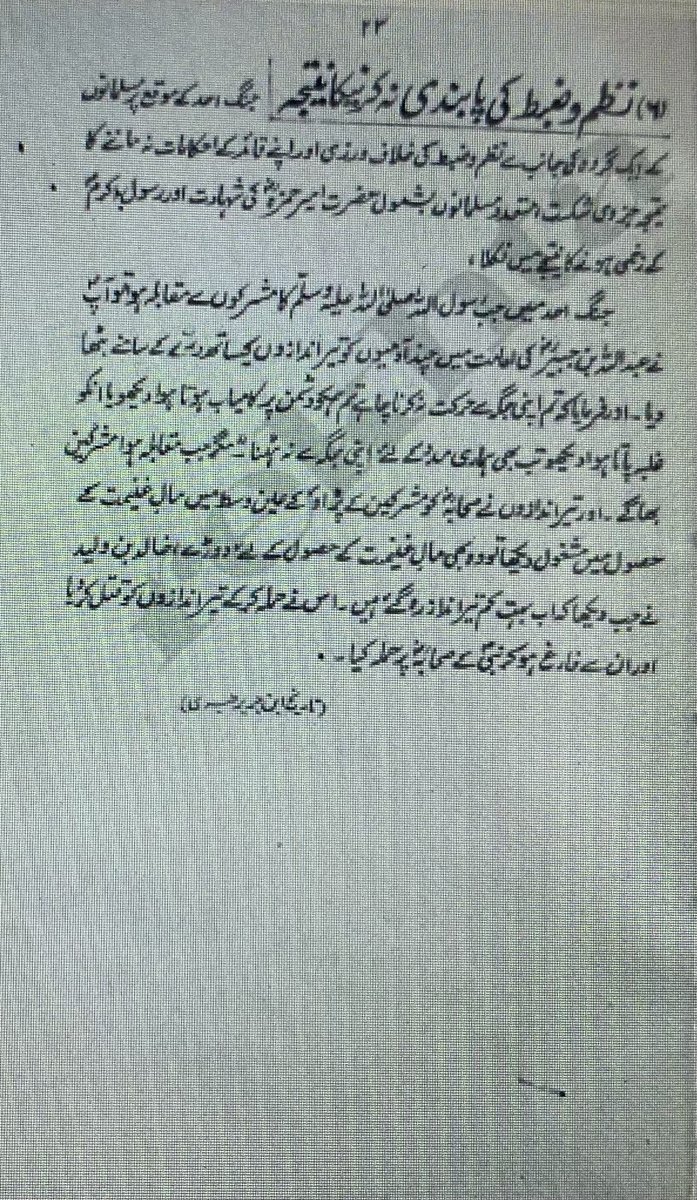 ۲۳
(۶) نظم وضبط کی پابندی نہ کرنیکا نتیجہ جنگ احد کے موقع پر مسلمانوں
کے ایک گروہ کی جانب سے نظم وضبط کی خلاف ورزی اور اپنے قائد کے احکامات نہ ماننے کا
نتیجہ جزوی شکست مسلمانوں بشمول حضرت امیر حمزہؓ کی شہادت اور رسول اکرمؐ
کے زخمی ہونے کا نتیجے میں نکلا۔
جنگ احد میں جب رسول اللہ صلی اللہ علیہ وسلم کا مشرکوں سے مقابلہ ہوا تو آپؐ
نے عبداللہ بن جبیرؓ کی امارت میں چند آدمیوں کو تیر اندازوں کیساتھ درے کے سامنے بٹھا
دیا۔ اور فرمایا کہ تم اپنی جگہ سے حرکت نہ کرنا چاہے تم ہمکو دشمن پر کامیاب ہوتا ہوا دیکھو یا انکو
غلبہ پاتا ہوا دیکھو تب بھی ہماری مدد کے لئے اپنی جگہ سے نہ ہٹنا مگر جب مقابلہ ہوا مشرکین
بھاگے۔ اور تیر اندازوں نے صحابہؓ کو مشرکین کے پڑاؤ کے عین وسط میں مال غنیمت کے
حصول میں مشغول دیکھا تو وہ بھی مال غنیمت کے حصول کے لئے دوڑے خالد بن ولید
نے جب دیکھا کہ اب بہت کم تیر انداز رہ گئے ہیں۔ اس نے حملہ کر کے تیر اندازوں کو قتل کر ڈالا
اور ان سے فارغ ہو کر نبیؐ کے صحابہؓ پر حملہ کیا۔
(تاریخ ابن جریر طبری)